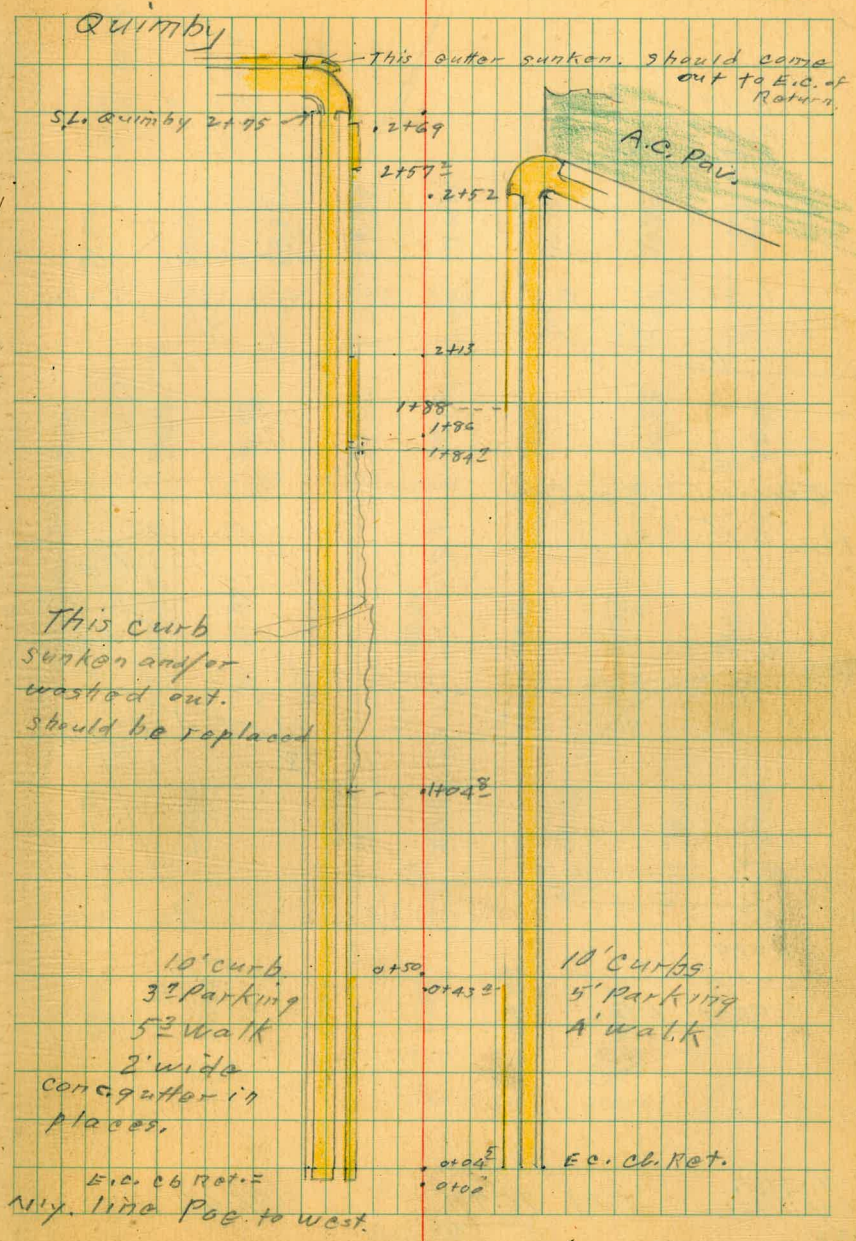 Quimby
This gutter sunken. should come
out to E.C. of
Return.
S.L. Quimby 2+75
2+69
A.C. Pav.
2+57²
2+52
2+13
1+88
1+86
1+84⁷
This curb
sunken and/or
washed out.
should be replaced
1+04⁸
10' curb
3⁷ Parking
5³ Walk
2' wide
conc. gutter in
places.
0+50
0+43
10' Curbs
5' Parking
4' walk
0+04⁵
E.C. Cb. Ret.
0+00
E.C. cb Ret. =
N'ly. line Pac. to west.